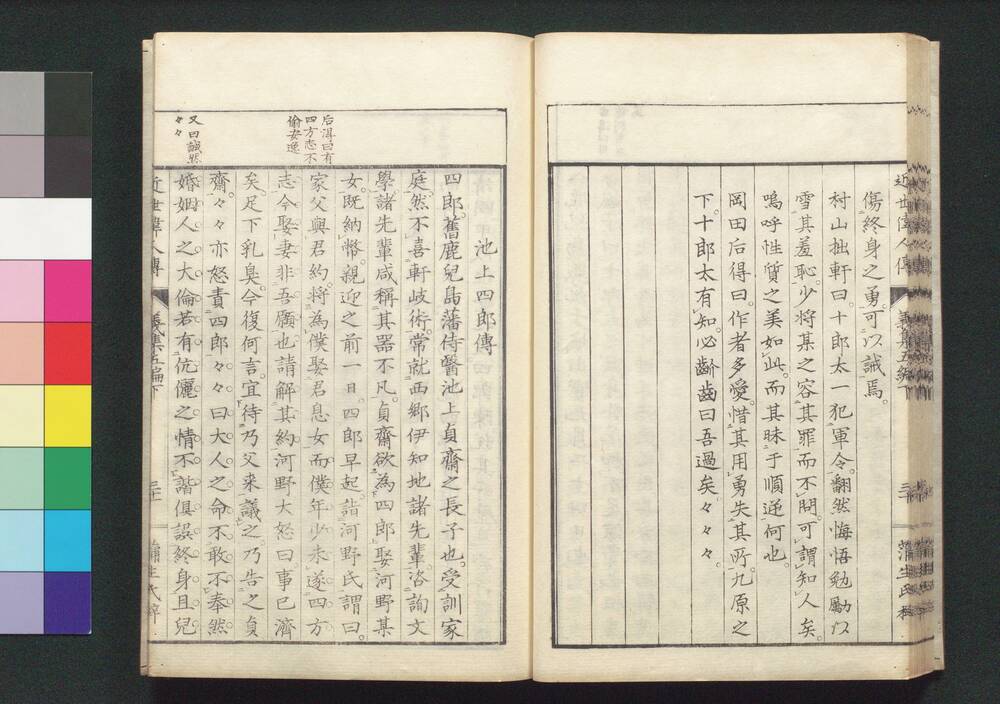 近世偉人傳
義集五編下
三十
蒲生氏梓
傷終身之勇。可以誡焉。
村山拙軒曰。十郎太一犯軍令。翻然悔悟勉勵以
雪其羞恥。少將某之容其罪而不問。可謂知人矣。
嗚呼性質之美如此。而其昧于順逆何也。
岡田后得曰。作者多愛。惜其用勇失其所。九原之
下。十郎太有知。必齰齒曰吾過矣々々々。
池上四郎傳
四郎。舊鹿兒島藩侍醫池上貞齋之長子也。受訓家
庭。然不喜軒岐術。常就西郷伊知地諸先輩。咨詢文
學。諸先輩咸稱其器不凡。貞齋欲為四郎娶河野某
女。既納幣。親迎之前一日。四郎早起。詣河野氏謂曰。
家父與君約。將為僕娶君息女。而僕年少未遂四方
志。今娶妻非吾願也。請解其約。河野大怒曰。事已濟
矣。足下乳臭。今復何言。宜待乃父来議之。乃告之貞
齋。々々亦怒責四郎。々々曰。大人之命不敢不奉。然
婚姻人之大倫。若有伉儷之情不諧。俱誤終身。且兒
后得曰有
四方志不
偷安逸
又曰誠然
々々
近世偉人傳
義集五編下
三十一
蒲生氏梓